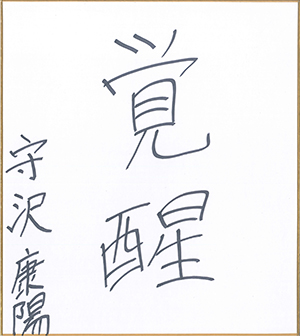 覚醒
守沢康陽